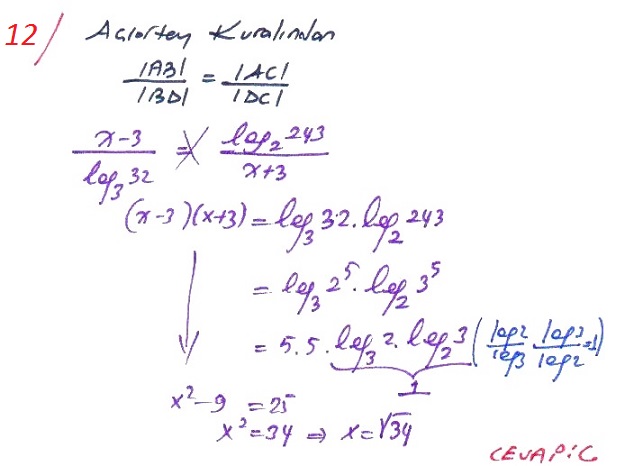 12/ Açıortay Kuralından
|AB|/|BD| = |AC|/|DC|
x-3/log₃32 = log₂243/x+3
(x-3)(x+3) = log₃32.log₂243
= log₃2⁵.log₂3⁵
= 5.5.log₃2.log₂3 (log2/log3 . log3/log2 =1)
1
x²-9 = 25
x²=34 ⇒ x=√34
CEVAP:C